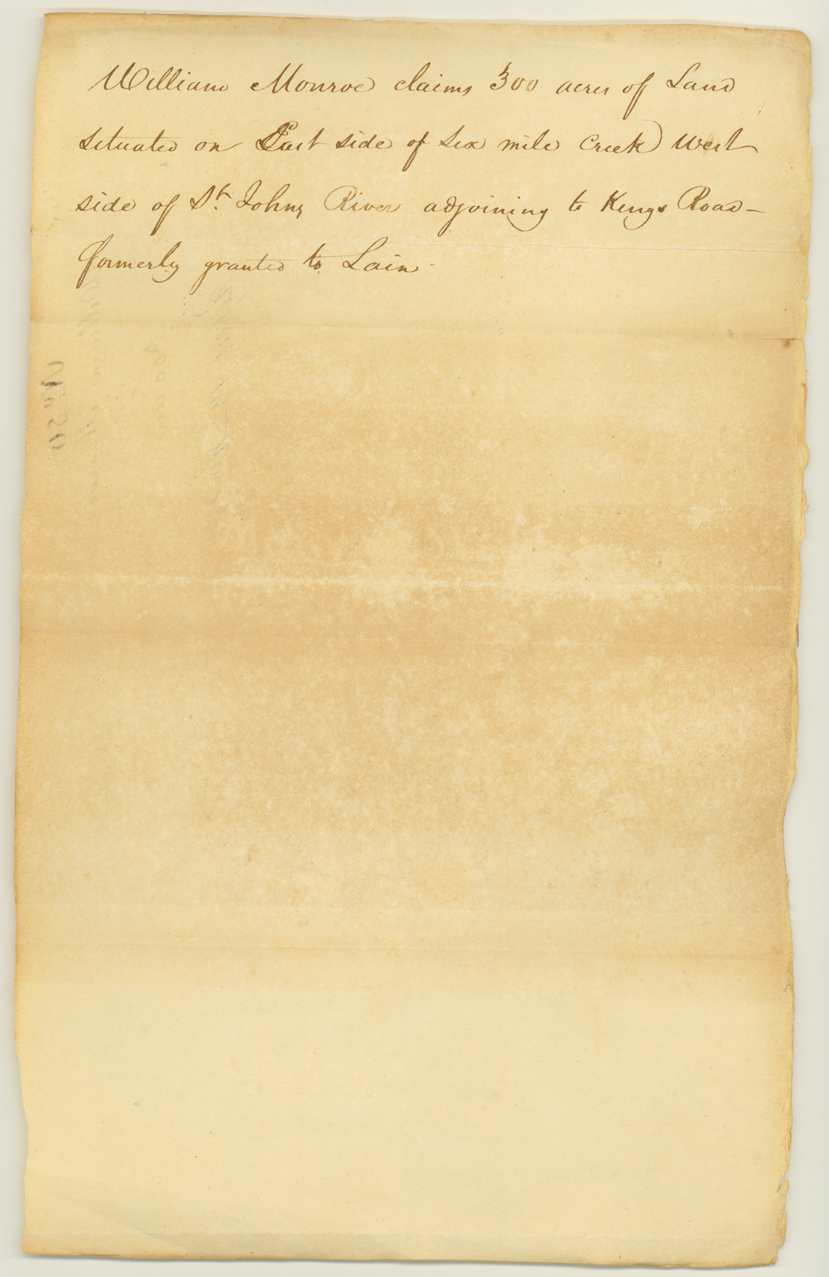 William Monroe claims 300 acres of Land
situated on East side of Six mile Creek West
side of St. Johns River adjoining to Kings Road –
formerly granted to Lain